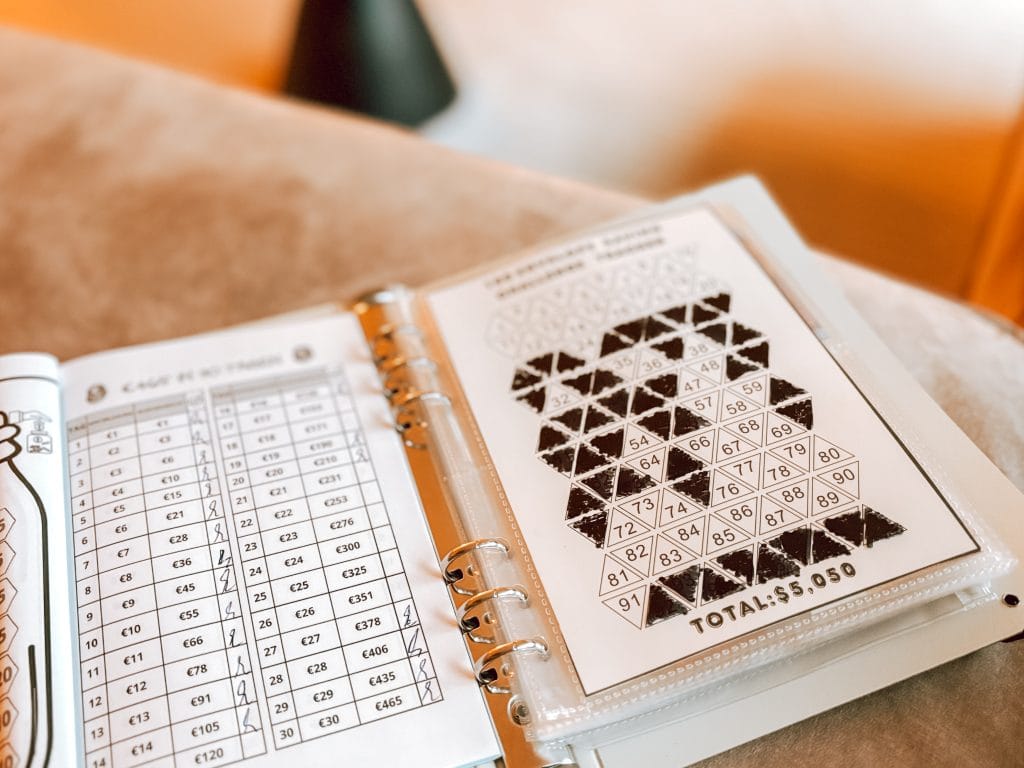 1 €1 €1
2 €2 €3
3 €3 €6
4 €4 €10
5 €5 €15
6 €6 €21
7 €7 €28
8 €8 €36
9 €9 €45
10 €10 €55
11 €11 €66
12 €12 €78
13 €13 €91
14 €14 €105
€120
17 €17
18 €18 €171
19 €19 €190
20 €20 €210
21 €21 €231
22 €22 €253
23 €23 €276
24 €24 €300
25 €25 €325
26 €26 €351
27 €27 €378
28 €28 €406
29 €29 €435
30 €30 €465
35 36 38
32 47 48
57 58 59
54 66 67 68 69
64 76 77 78 79 80
72 73 74
81 82 83 84 85 86 87 88 89 90
91
TOTAL:$5,050